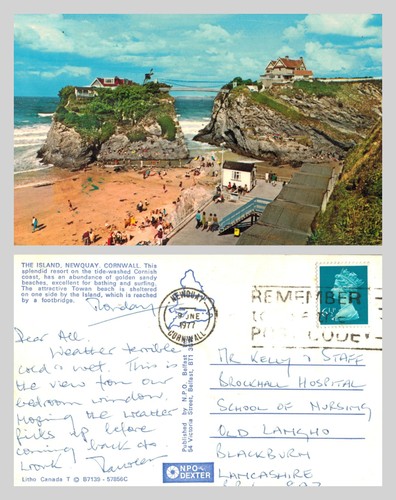 THE ISLAND, NEWQUAY, CORNWALL. This
splendid resort on the tide-washed Cornish
coast, has an abundance of golden sandy
beaches, excellent for bathing and surfing.
The attractive Towan beach is sheltered
on one side by the Island, which is reached
by a footbridge.
Monday
Dear All,
Weather terrible
cold & wet. This is
the view from our
bedroom window.
Hoping the weather
picks up before
coming back to
work.
Litho Canada T © B7139 - 57856C
Published by N.P.O. Belfast
54 Victoria Street, Belfast, BT1 3
NPO
DEXTER
NEWQUAY
JNE
1977
CORNWALL
REMEMBER
MR KELLY & STAFF
BROCKHALL HOSPITAL
SCHOOL OF NURSING
OLD LANGHO
BLACKBURN
LANCASHIRE